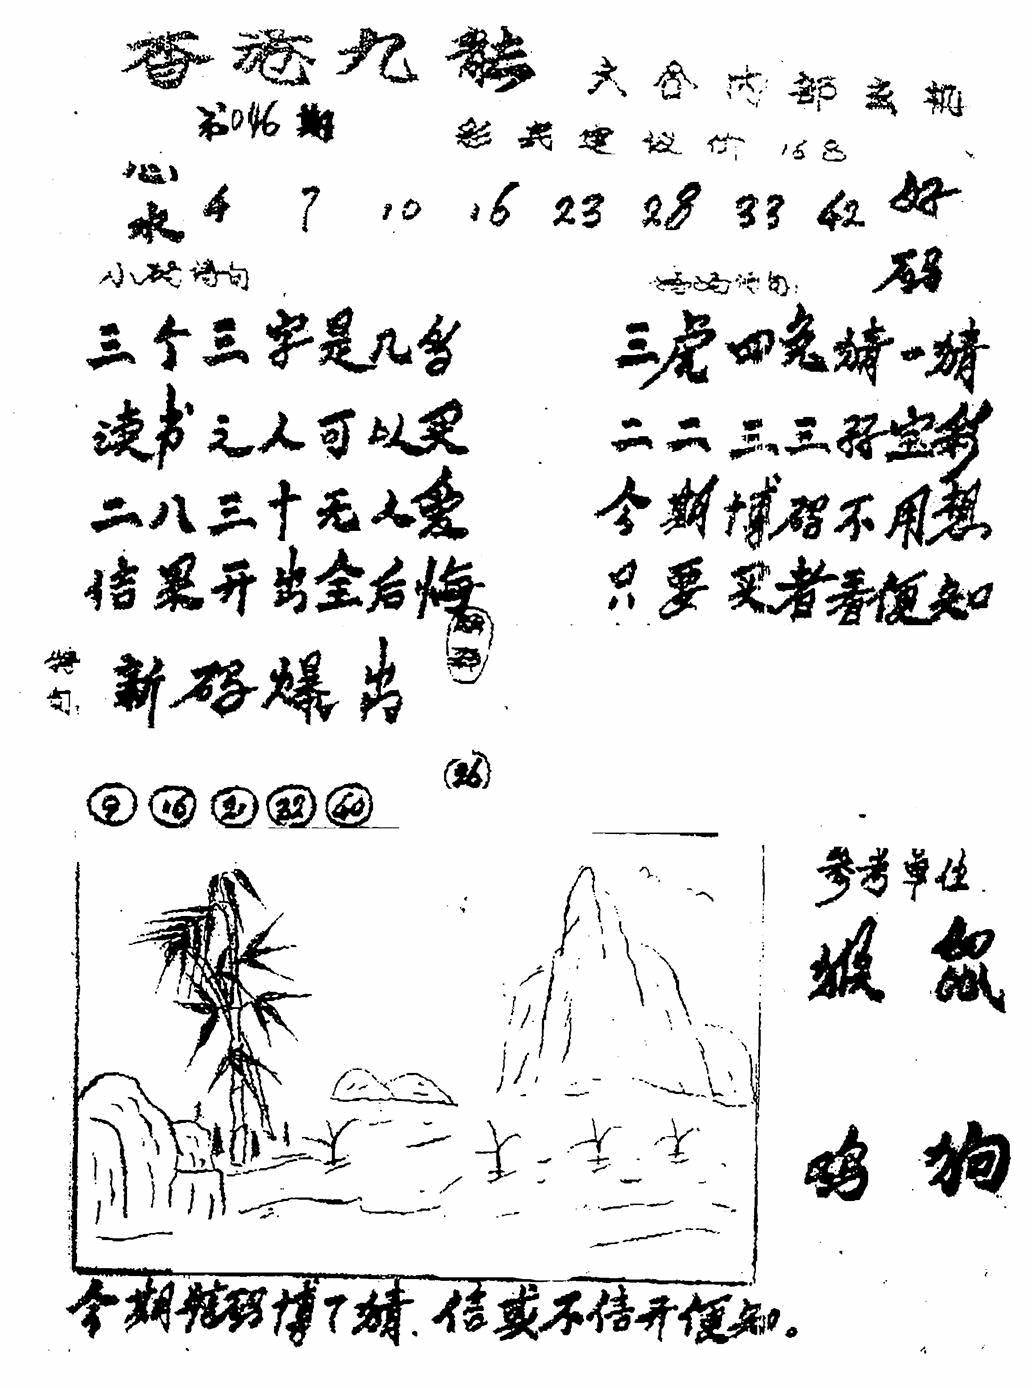 香港九龙
六合内部玄机
第046期
彩民建议价168
心水 4 7 10 16 23 28 33 42 好码
小码诗句
诗句
三个三字是几多
读书之人可以买
二八三十无人爱
结果开出全后悔
三虎四兔猜一猜
二二三三好宝彩
今期博码不用想
只要买者看便知
特句
新码爆出
26
9 16 21 32 40
参考单位
猴 鼠
鸡 狗
今期龙码博了猜.信或不信开便知。